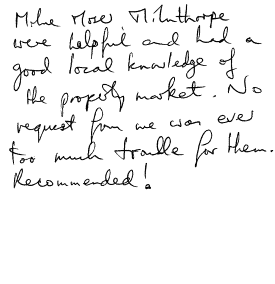 Milne Moser Milnthorpe
were helpful and had a
good local knowledge of
the property market. No
request from me was ever
too much trouble for them.
Recommended!